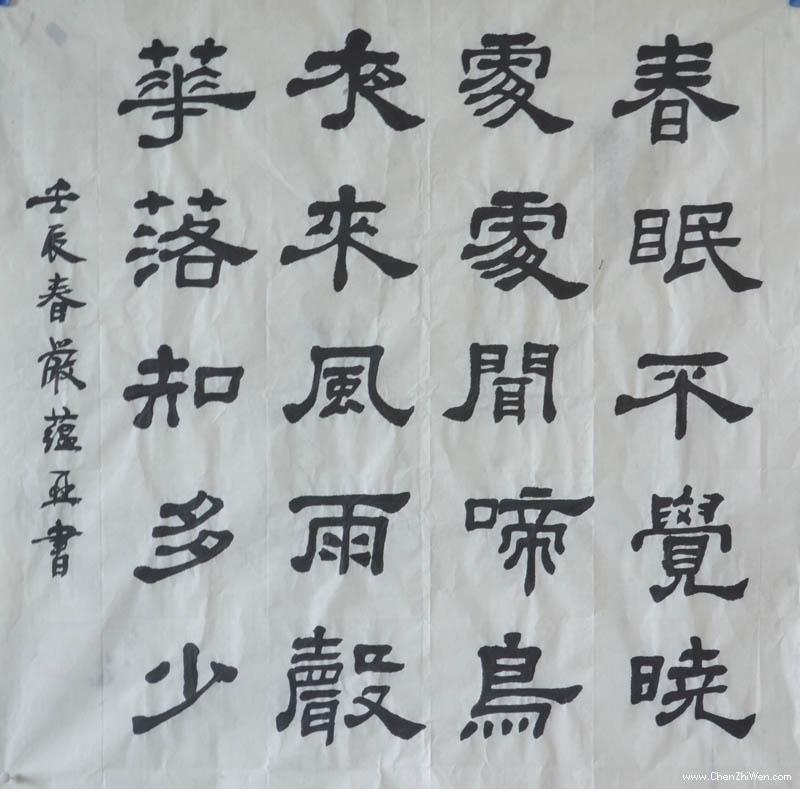 春眠不覺曉
處處聞啼鳥
夜來風雨聲
華落知多少
壬辰春嚴蕴亚書
www.ChenZhiWen.com